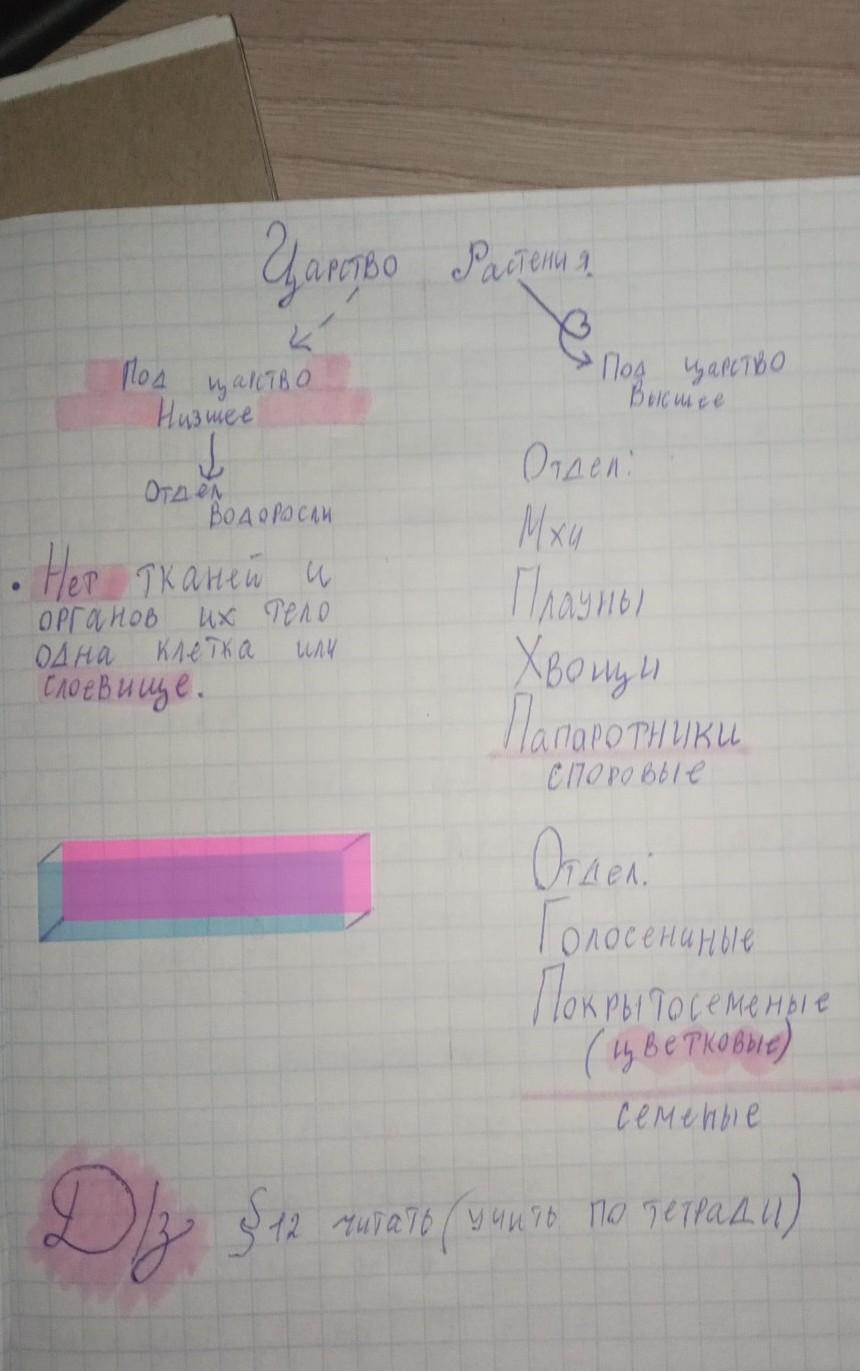 Царство Растения.
Под царство
Низшее
Отдел
Водоросли
• Нет тканей и
органов их тело
одна клетка или
слоевище.
Под царство
Высшее
Отдел:
Мхи
Плауны
Хвощи
Папаротники
споровые
Отдел:
Голосениные
Покрытосеменые
(цветковые)
семеные
Д/з §12 читать (учить по тетради)